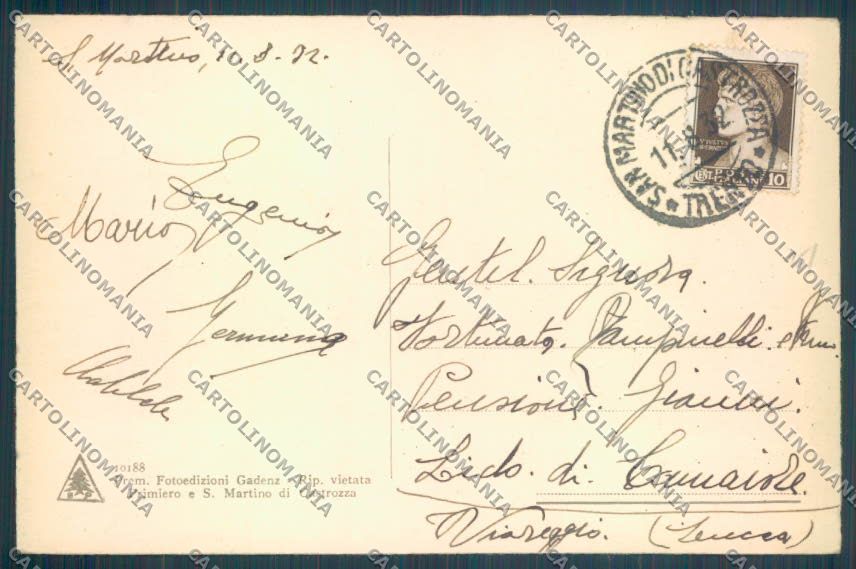 S. Martino, 11.8.32.
SAN MARTINO DI CASTROZZA
TRENTO
11.8.32
POSTE ITALIANE
10
Eugenio
Mario
Germana
Clotilde
Gentil. Signora
Fortunato Zampinelli e Fam.
Pensione Gianni.
Lido di Camaiore
Viareggio. (Lucca)
10188
Prem. Fotoedizioni Gadenz - Rip. vietata
Primiero e S. Martino di Castrozza
CARTOLINOMANIA